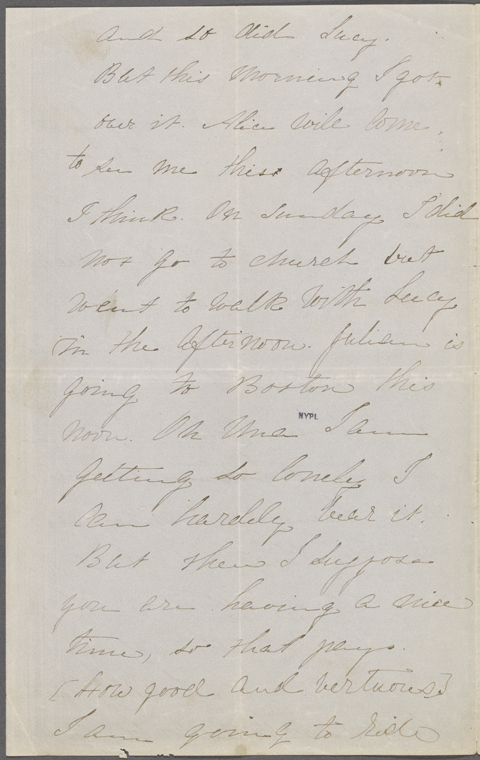 and so did Lucy.
But this morning I got
over it. Alice will come,
to see me this afternoon
I think. On Sunday I did
not go to church but
went to walk with Lucy
in the afternoon. Julian is
going to Boston this
noon. Oh Una I am
NYPL
getting so lonely I
can hardely bear it.
But then I suppose
you are having a nice
time, so that pays.
(How good and vertuous)
I am going to ride